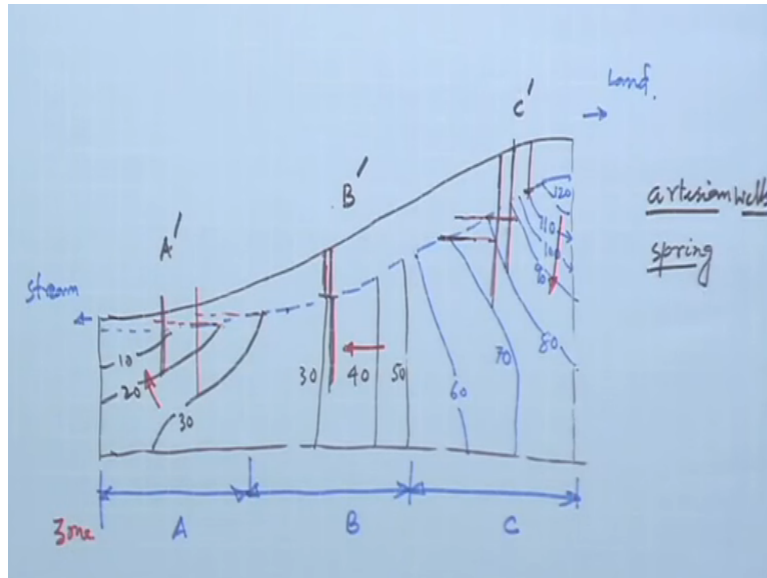 Land.
C'
B'
A'
artesian wells
spring
stream
120
110
100
90
10
20
30
30
40
50
60
70
80
Zone
A
B
C